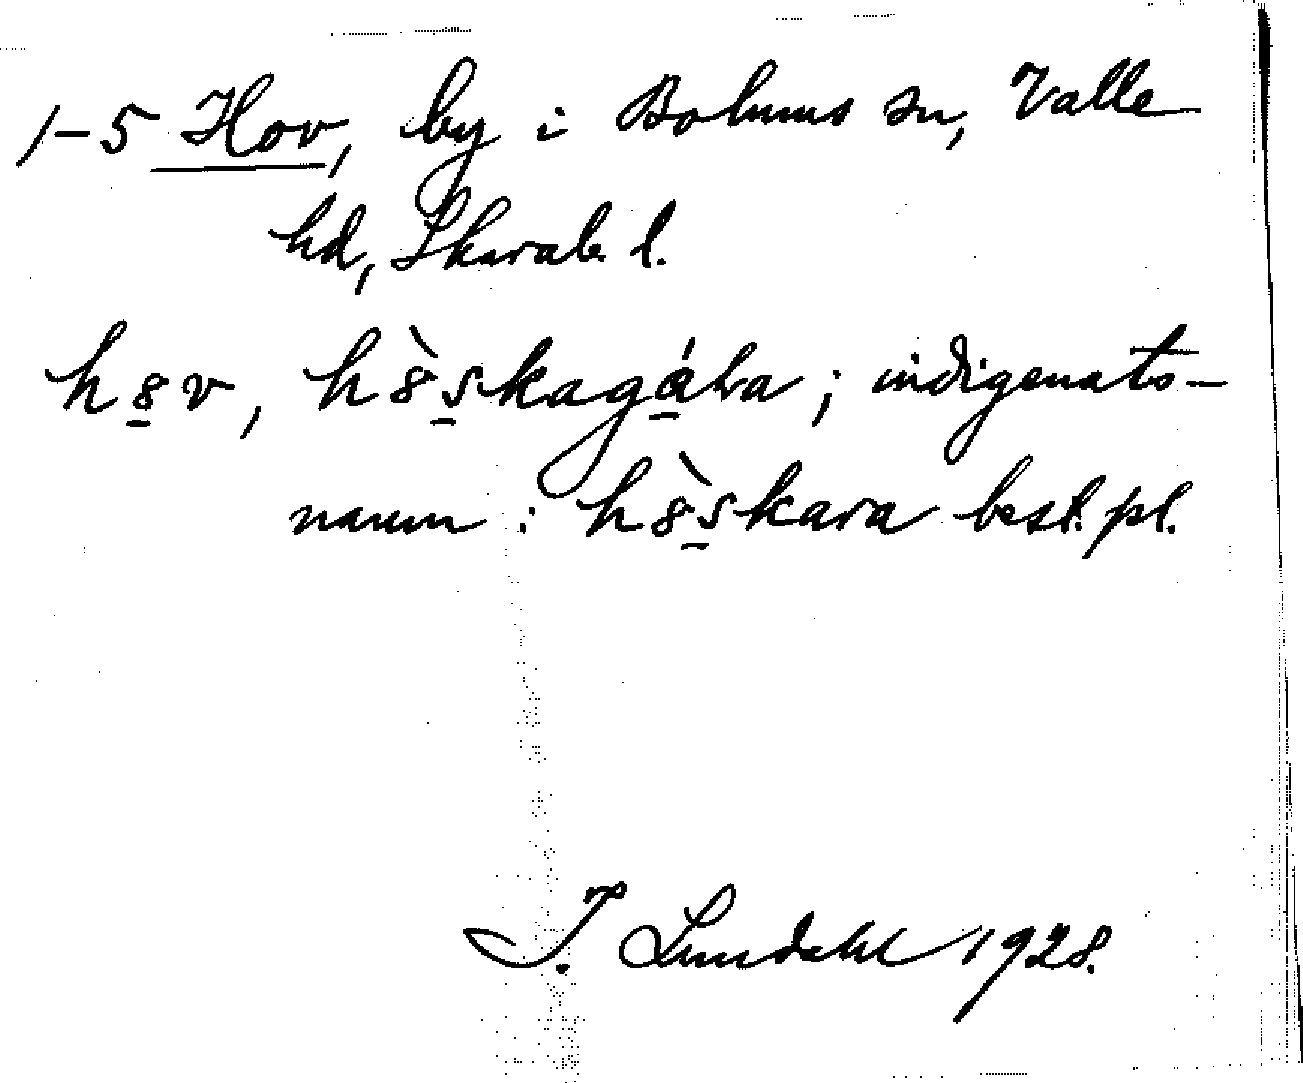 1-5 Hov, by i Bolums sn, Valle
hd, Skarab. l.
h8̲v, h8̀s̲kagá̲ra; indigenats-
namn: h8̀s̲kara best. pl.
I. Lundahl 1928.